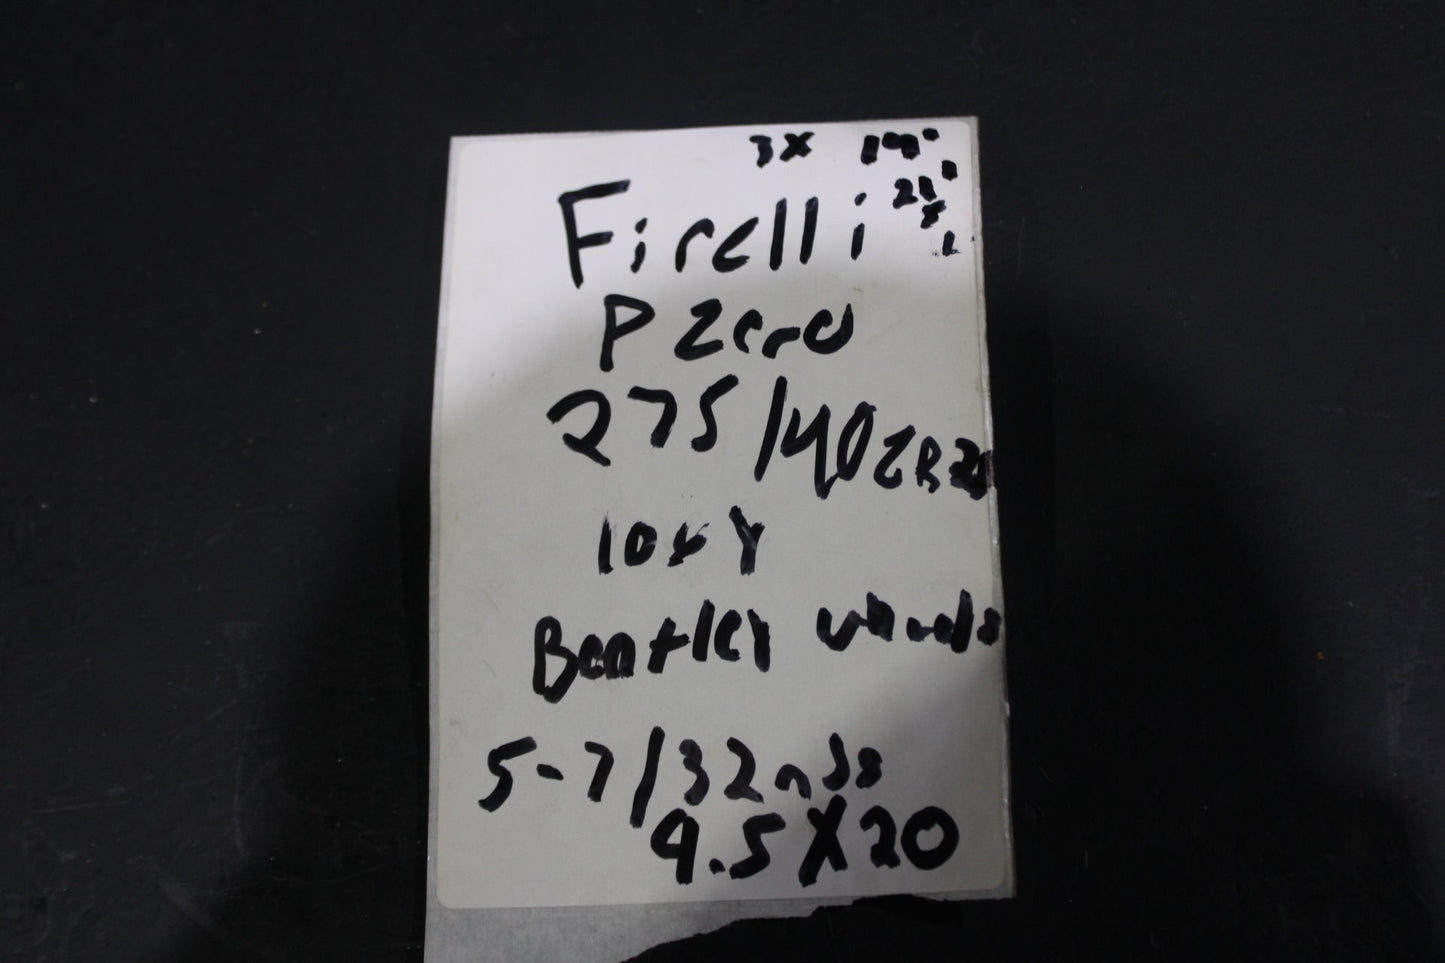 3X
Firelli
P Zero
275/40ZR20
106Y
Bentley wheels
5-7/32nds
9.5X20